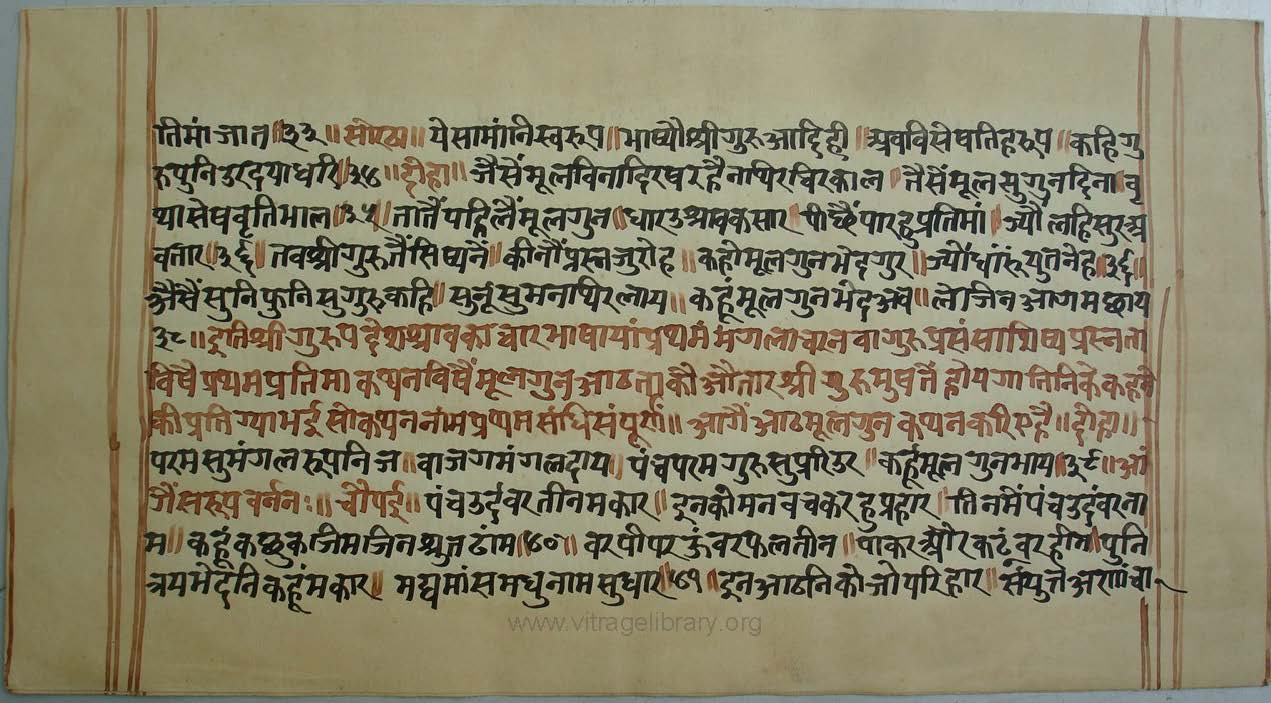 तिमां जान ॥३३॥ सोरठा ॥ ये सामांनि स्वरूप ॥ भाष्यौ श्री गुरु आदि ही ॥ अब विसेष तिह रूप ॥ कहि गु
रु पुनि उर दया धरि ॥३४॥ दोहा ॥ जैसें मूल विना दिरष रहै न थिर चिरकाल ॥ तैसें मूल सुगुन विना ॥ वृ
था सेष वृति भाल ॥३५॥ तातैं पहिलैं मूलगुन ॥ धारउ श्रावक सार ॥ पीछैं पारहु प्रतिमां ॥ ज्यौं लहि सुर अ
वतार ॥३६॥ तव श्री गुरु तैं सिष्य नें ॥ कीनौं प्रस्न जु रोह ॥ कहो मूलगुन भेद गुर ॥ ज्यों धांरूं युत नेह ॥३६॥
अैसैं सुनि फुनि सुगुरु कहि ॥ सुनूं सुमन थिर लाय ॥ कहूं मूलगुन भेद अब ॥ ले जिन आगम छाय
३८॥ इति श्री गुरुपदेश श्रावकाचार भाषायां प्रथम मंगलाचरन वा गुरु प्रसंसा शिष्य प्रस्न ता
विषै प्रथम प्रतिमा कथन विषैं मूलगुन आठ ताकौ औतार श्री गुरु मुष तें होय गा तिनिके कहनै
की प्रतिग्या भई सो कथन नांम प्रथम संधि संपूर्ण ॥ आगैं आठ मूलगुन कथन करिए है ॥ दोहा ॥
परम सुमंगल रूप निज ॥ वा जग मंगल दाय ॥ पंच परम गुरु सुधरि उर ॥ कहूं मूलगुन भाय ॥३९॥ आं
जैं सरूप वर्नन: ॥ चौपई ॥ पंच उदंवर तीन मकार ॥ इनकौ मन वच कर हु प्रहार ॥ तिनमें पंच उदंवर ना
म ॥ कहूं कछुक जिम जिनश्रुत ठांम ॥४०॥ वर पीपर ऊंवर फल तीन ॥ पाकर और कटंवर हीन ॥ पुनि
त्रय भेदनि कहूं मकार ॥ मद्य मांस मधु नाम सुधार ॥४१॥ इन आठनि कौ जो परिहार ॥ संयुत